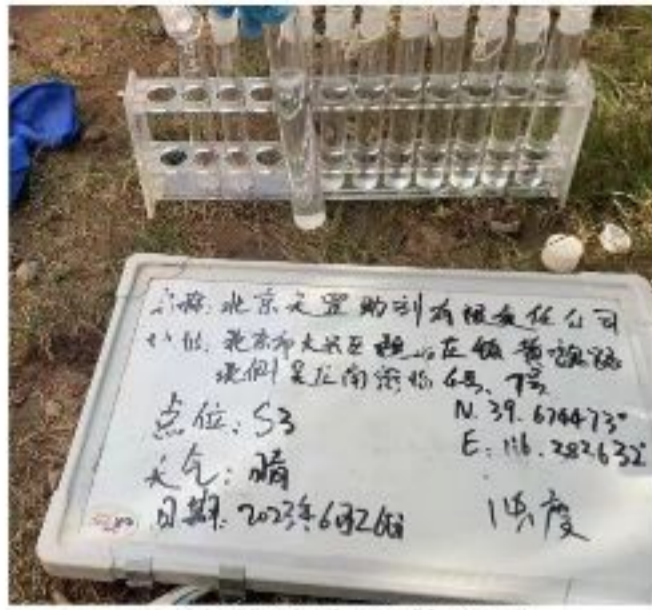 名称:北京天罡助剂有限责任公司
地址:北京市大兴区魏善庄镇黄
北侧 南 6号、7号
点位:S3
N.39.674473°
E:116.282632°
天气:晴
日期:2023年6月26日
浊度